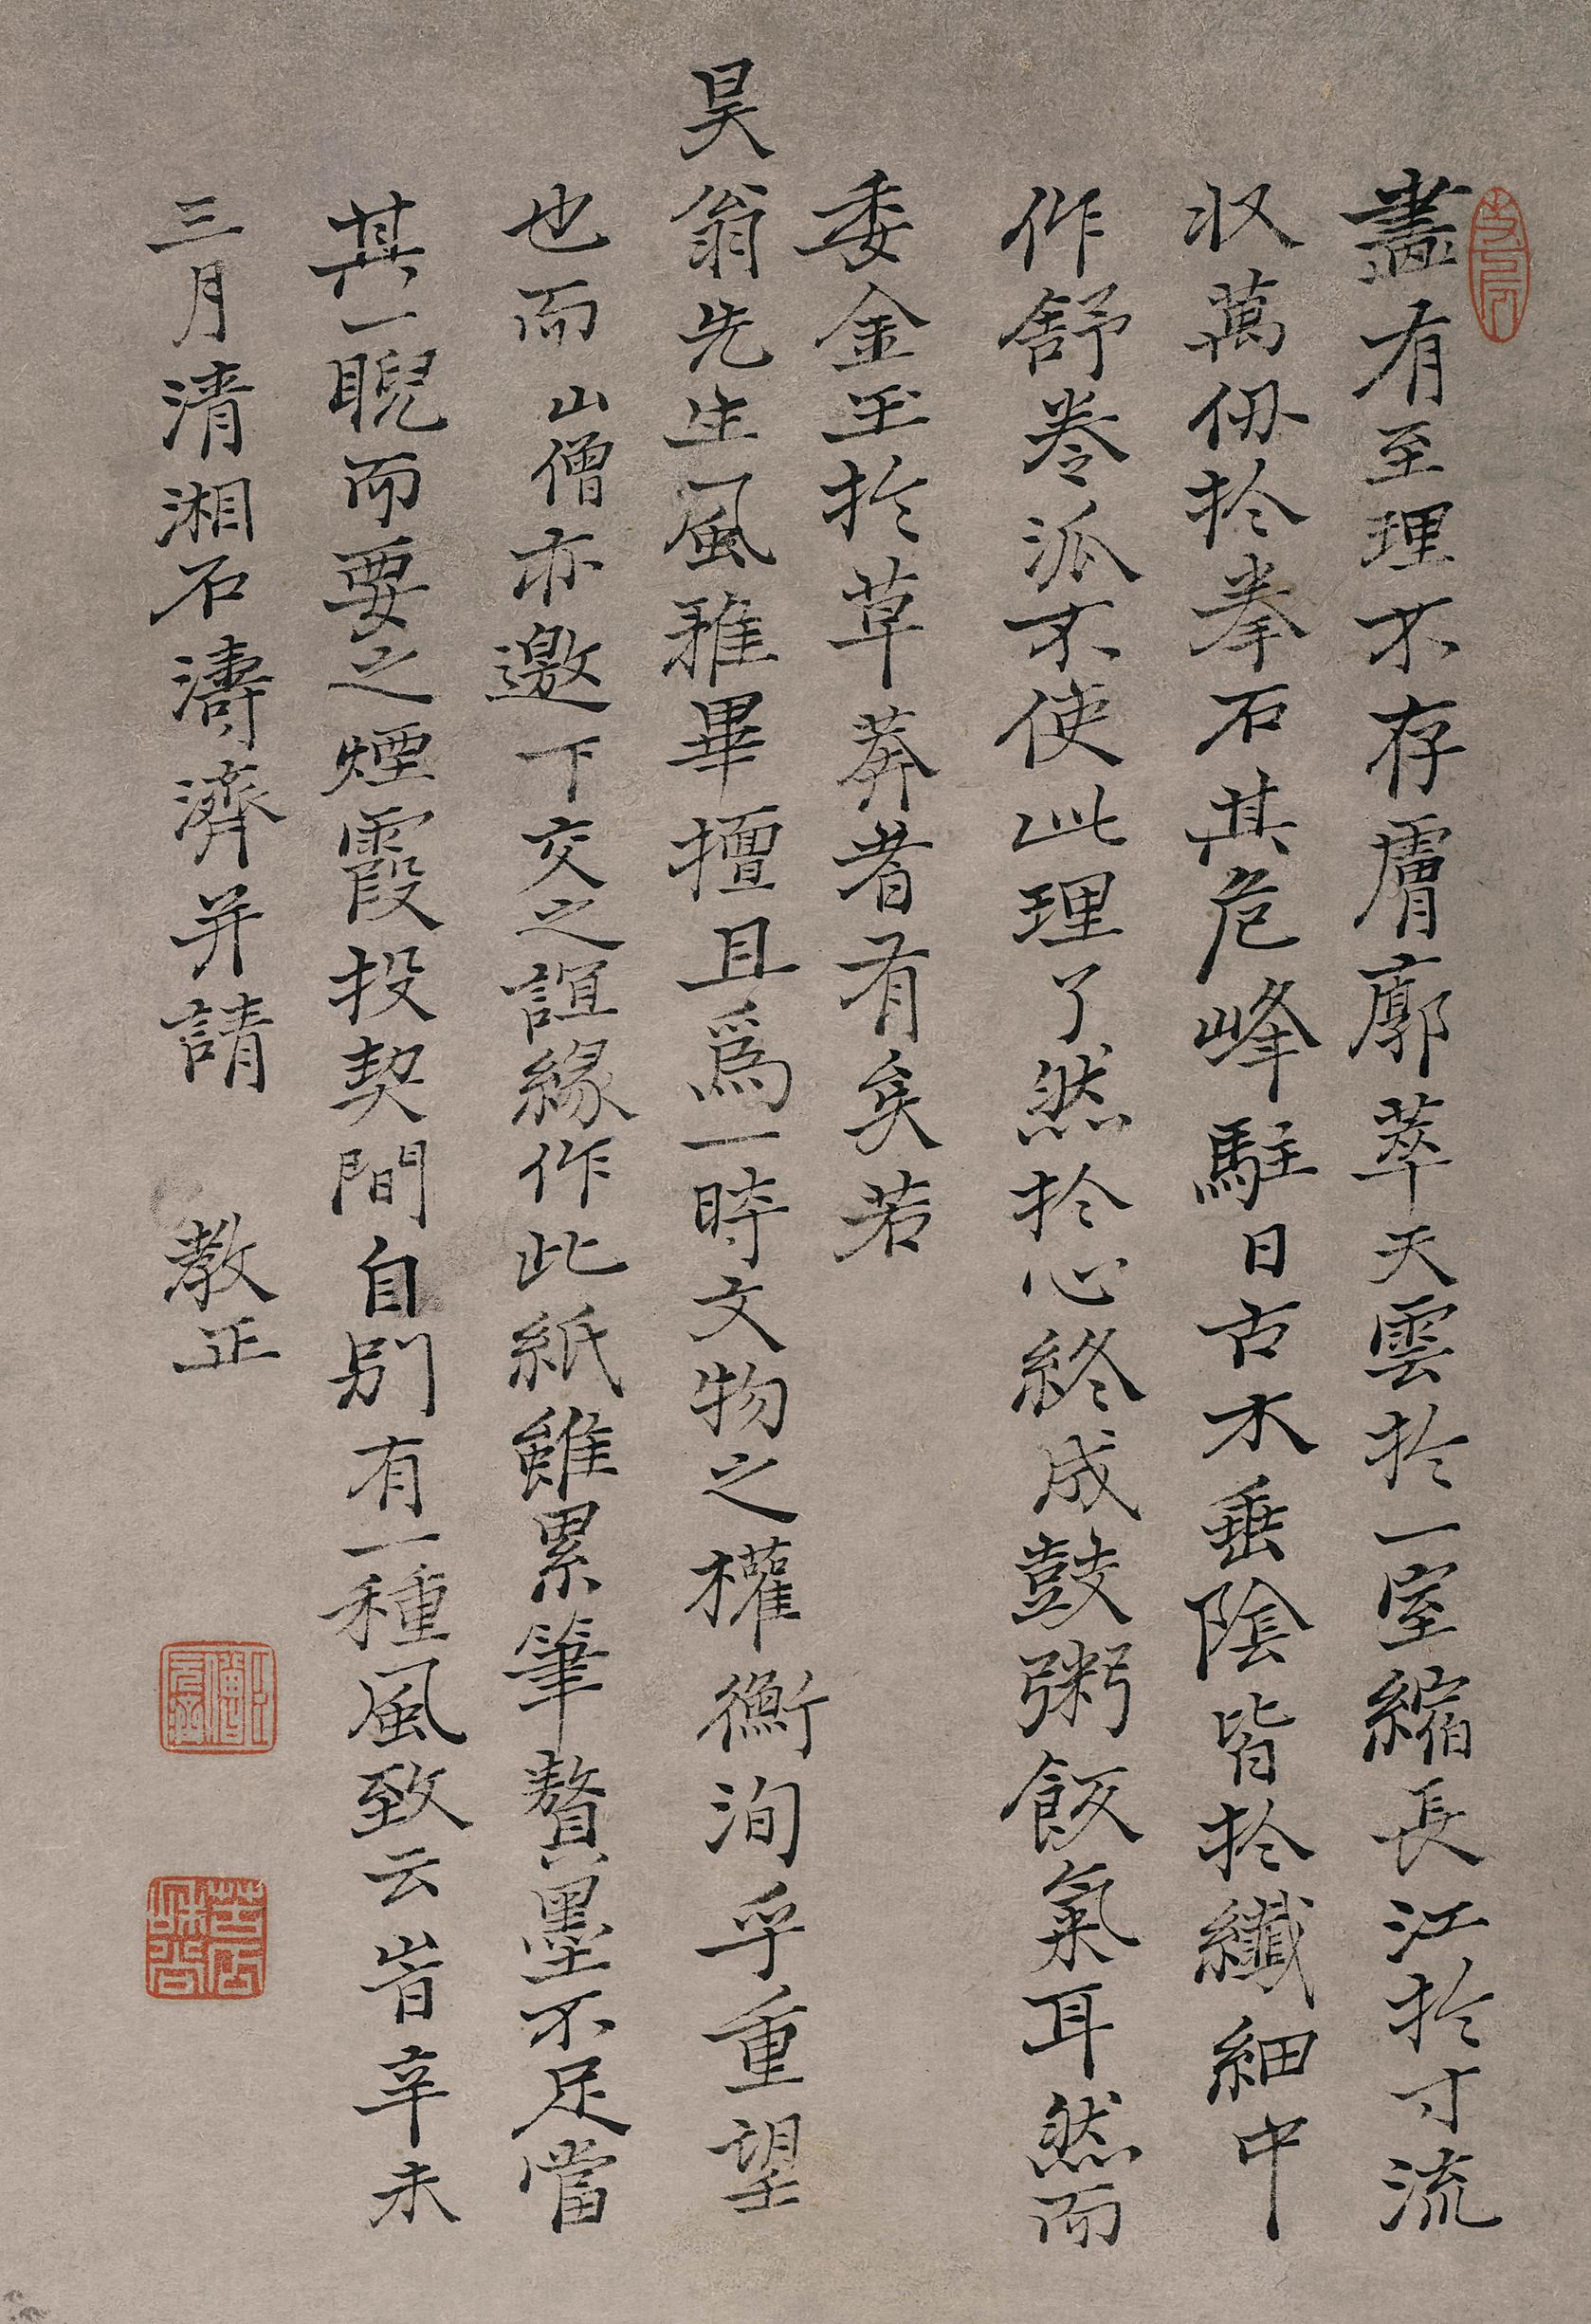 畫有至理不存膚廓萃天雲於一室縮長江於寸流
收萬仞於拳石其危峰駐日古木垂陰皆於纖細中
作舒卷派不使此理了然於心終成鼓粥飯氣耳然而
委金玉於草莽者有矣若
昊翁先生風雅畢擅且爲一時文物之權衡洵乎重望
也而山僧亦邀下交之誼緣作此紙雖累筆贅墨不足當
其一睨而要之煙霞投契間自別有一種風致云旹辛未
三月清湘石濤濟并請 教正